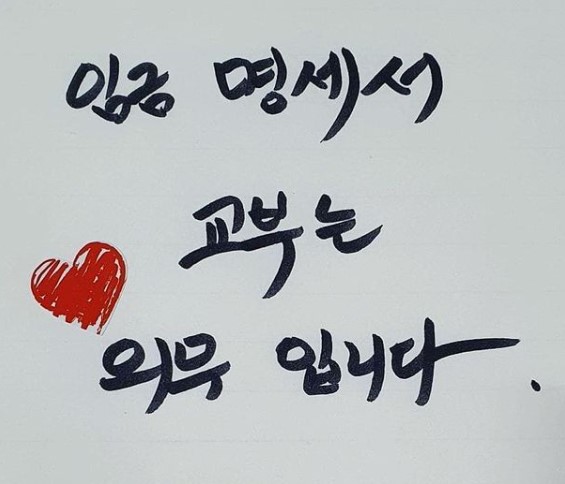 임금 명세서
교부는
의무 입니다.